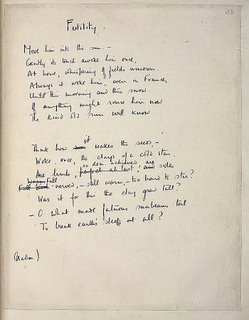 Futility.
Move him into the sun —
Gently its touch awoke him once,
At home, whispering of fields unsown.
Always it woke him, even in France,
Until this morning and this snow.
If anything might rouse him now
The kind old sun will know.
Think how it wakes the seeds, —
Woke, once, the clays of a cold star.
Are limbs, so dear-achieved, are sides
nerved, — still warm, — too hard to stir?
Was it for this the clay grew tall?
— O what made fatuous sunbeams toil
To break earth's sleep at all?